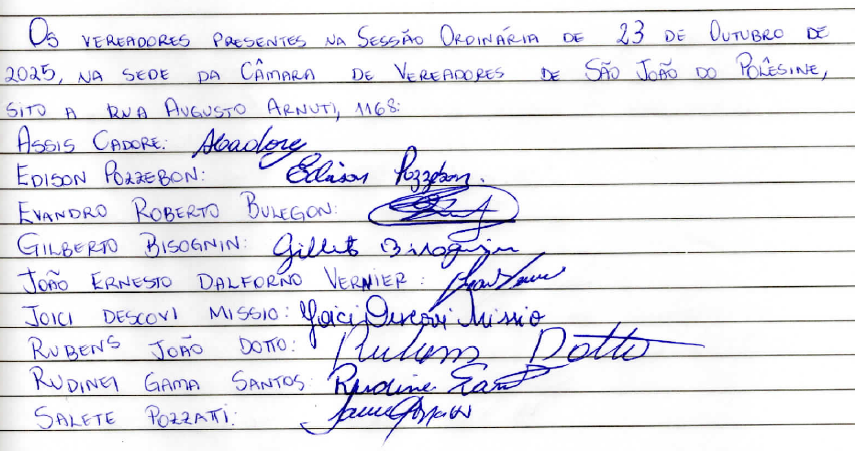 Os VEREADORES PRESENTES NA SESSÃO ORDINÁRIA DE 23 DE OUTUBRO DE
2025, NA SEDE DA CÂMARA DE VEREADORES DE SÃO JOÃO DO POLÊSINE,
SITO A RUA AUGUSTO ARNUTI, 1168:
ASSIS CADORE: Acadore
EDISON POZZEBON: Edison Pozzebon.
EVANDRO ROBERTO BULEGON:
GILBERTO BISOGNIN: Gilberto Bisognin
JOÃO ERNESTO DALFORNO VERNIER:
JOICI DESCOVI MISSIO: Joici Descovi Missio
RUBENS JOÃO DOTTO: Rubens Dotto
RUDINEI GAMA SANTOS: Rudinei
SALETE POZZATTI: